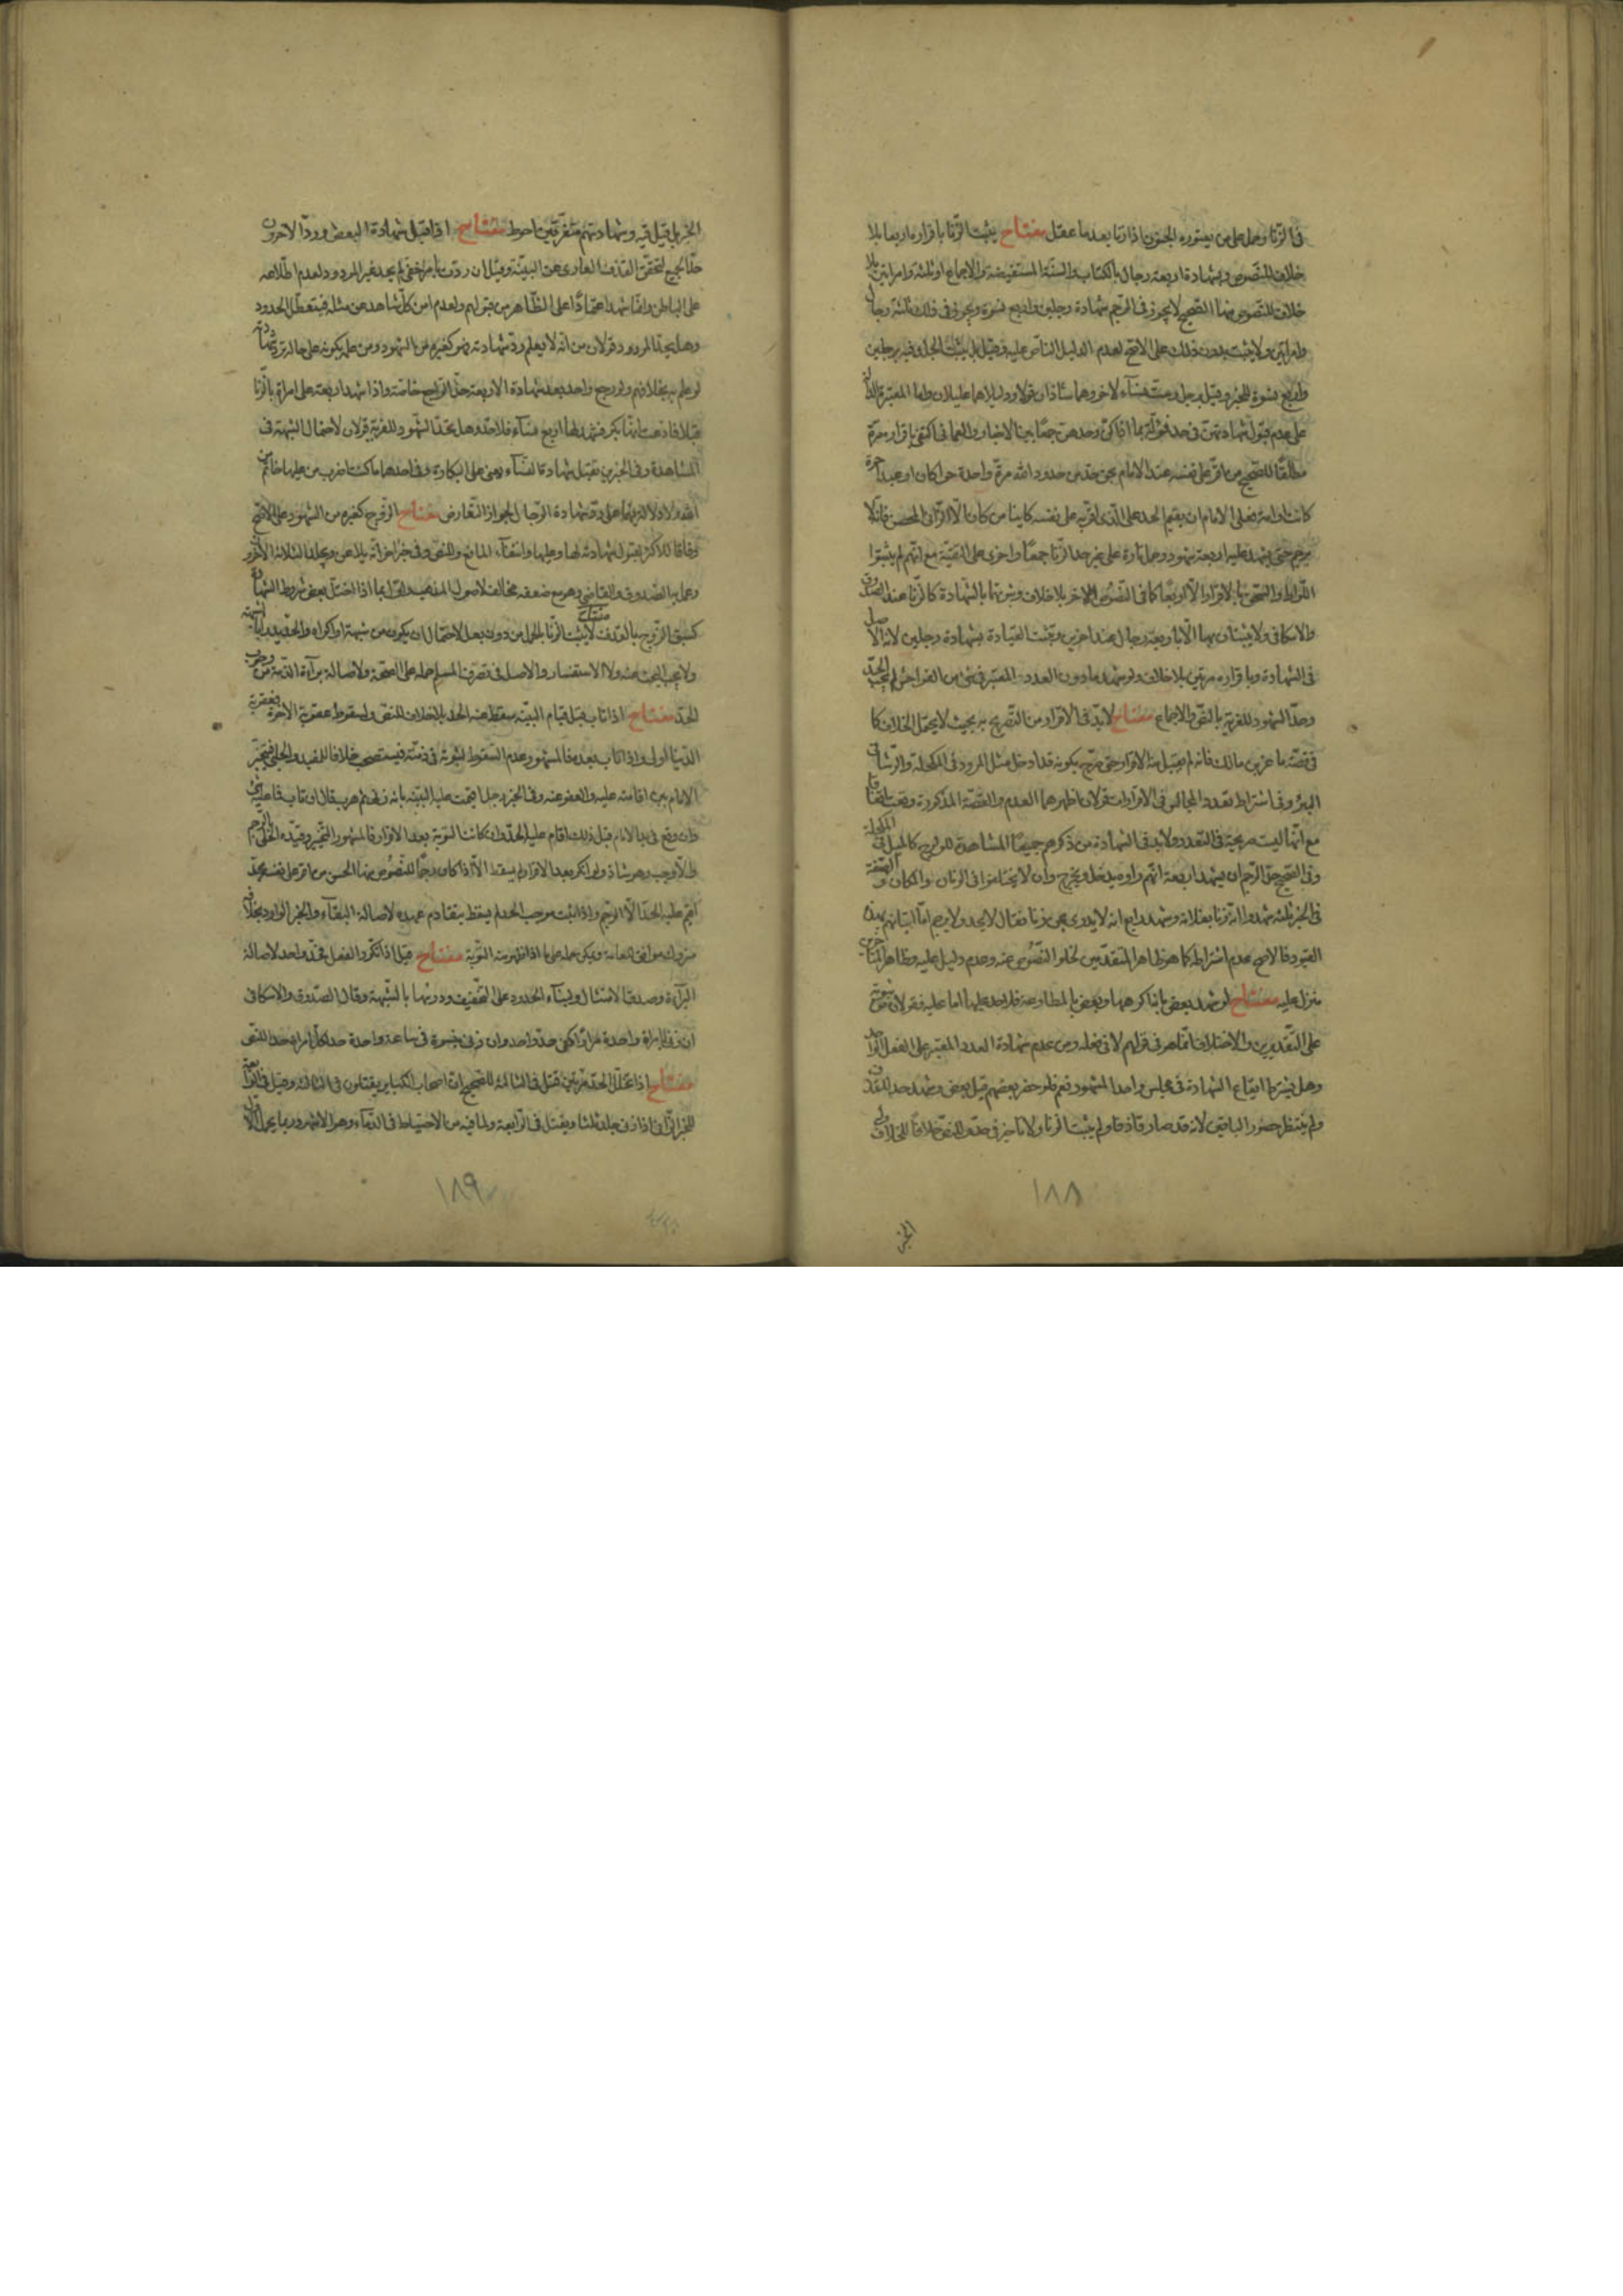 فى الزنا وحمل على من يعتوره الجنون اذا زنا بعد ما عقل مفتاح يثبت الزنا باقراره اربعا بلا
خلاف للنصوص وبشهادة اربعة رجال بالكتاب والسنة المستفيضة والاجماع او ثلثة وامراتين بلا
خلاف للنصوص منها الصحيح لا يجوز فى الرجم شهادة رجلين واربع نسوة ويجوز فى ذلك ثلثة رجال
وامراتين ولا يثبت بدون ذلك على الاصح لعدم الدليل الناص عليه وقيل بل يثبت الجلد فيه برجلين
واربع نسوة للخبر وقيل برجل وست نساء لاخر وهما شاذان قولا ودليلاهما عليلان
على عدم قبول شهادتهن فى حد
مطلقا للصحيح من اقر على نفسه عند الامام بحق حد من حدود الله مرة واحدة حرا كان او عبدا حرة
كانت او امة فعلى الامام ان يقيم الحد على الذى اقر به على نفسه كاينا من كان الا الزانى المحصن فانه لا
يرجم حتى يشهد عليه اربعة شهود وحمل تارة على غير حد الزنا جمعا واخرى على التقية مع انهم لم يثبتوا
اللواط والسحق بالاقرار الا اربعا كما فى النصوص بلا خلاف وثبوتها بالشهادة كالزنا عند الصدوق
والاسكافى ولا يثبتان بها الا باربعة رجال عند اخرين ويثبت القيادة بشهادة رجلين لانه الاصل
فى الشهادة وباقراره مرتين بلا خلاف ولو شهد ما دون العدد المعتبر فى شىء من الفواحش لم يجب الحد
وحد الشهود للفرية بالنص والاجماع مفتاح لا بد فى الاقرار من التصريح به بحيث لا يحتمل الخلاف كما
فى قصة ماعز بن مالك فانه لم يقبل منه الاقرار حتى صرح بكونه قد ادخل مثل المرود فى المكحلة والرشا فى
البئر وفى اشتراط تعدد المجالس فى الاقرارات قولان اظهرهما العدم والقصة المذكورة وقعت اتفاقا
مع انها ليست صريحة فى التعدد ولا بد فى الشهادة من ذكرهم جميعا المشاهدة للولوج كالميل فى المكحلة
وفى الصحيح حق الرجم ان يشهد اربعة انهم راوه يدخل ويخرج وان لا يختلفوا فى الزمان والمكان والصفة
فى الخبر ثلثة شهدوا انه زنا بفلانة وشهد الرابع انه لا يدرى بمن زنا فقال لا يحد ولا يرجم اما اتيانهم بهذه
القيود فالاصح عدم اشتراطه كما هو ظاهر المتقدمين لخلو النصوص عنه وعدم دليل عليه وظاهر المتاخرين
منزل عليه مفتاح لو شهد بعض باكرهها وبعض بالمطاوعة فلا حد عليها اما عليه فقولان من ثبوته
على التقديرين والاختلاف انما هو فى قولهم لا فى فعله ومن عدم شهادة العدد المعتبر على الفعل الواحد
وهل يشترط ايقاع الشهادة فى مجلس واحد المشهور نعم فلو حضر بعضهم قبل بعض وشهد حد للقذف
ولم ينتظر حضور الباقين لانه قد صار قاذفا ولم يثبت الزنا ولا تاخير فى حد للنص خلافا للخلاف
١٨٨
الخبر
الخبر بل قيل فيه وشهادتهم متفرقين احوط مفتاح اذا قبل شهادة البعض ورد الاخرون
حد الجميع لتحقق القذف العارى عن البينة وقيل ان ردت بامر خفى لم يحد غير المردود لعدم اطلاعه
على الباطن وانما شهد اعتمادا على الظاهر من قبولهم ولعدم امن كل شاهد عن مثله فيتعطل الحدود
وهل يحد المردود قولان من انه لا يعلم رد شهادته فهو كغيره من الشهود ومن علمه بكونه على حالة ترد شهادته
لو علم به بخلافهم ولو رجع واحد بعد شهادة الاربعة حد الراجع خاصة واذا شهد اربعة على امراة بالزنا
قبلا فادعت انها بكر فشهد لها اربع نساء فلا حد وهل يحد الشهود للفرية قولان لاحتمال الشبهة فى
المشاهدة وفى الخبرين تقبل شهادة النساء يعنى على البكارة وفى احدهما ما كنت اضرب من عليها خاتم من
الله ولا دلالة فيهما على رد شهادة الرجال لجواز التعارض مفتاح الزوج كغيره من الشهود على الاصح
وفاقا للاكثر لقبول شهادته لها وعليها وانتفاء المانع وللنص وفى خبر اخر انه يلاعن ويجلد الثلاثة الاخر
وعمل به الصدوق والقاضى وهو مع ضعفه مخالف لاصول المذهب واول بما اذا اختل بعض شروط الشهادة
كسبق الزوج بالقذف مفتاح لا يثبت الزنا بالحمل من دون بعل لاحتمال ان يكون من شبهة او اكراه والحد يدرا بالشبهة
ولا يجب البحث عنه ولا الاستفسار والاصل فى تصرف المسلم حمله على الصحة ولاصالة براءة الذمة من وجوب
الحد مفتاح اذا تاب قبل قيام البينة سقط عنه الحد بلا خلاف للنص ولسقوط عقوبة الاخرة فعقوبة
الدنيا اولى واذا تاب بعده فالمشهور عدم السقوط لثبوته فى ذمته فيستصحب خلافا للمفيد والحلبى فيتخير
الامام بين اقامته عليه والعفو عنه وفى الخبر رجل اقيمت عليه البينة بانه زنى ثم هرب قال ان تاب فما عليه شىء
وان وقع فى يد الامام قبل ذلك اقام عليه الحد وان كانت التوبة بعد الاقرار فالمشهور التخيير وقيده الحلى بالرجم
والا وجب وهو شاذ ولو انكر بعد الاقرار لم يسقط الا اذا كان رجما للنصوص منها الحسن من اقر على نفسه بحد
اقيم عليه الحد الا الرجم واذا ثبت موجب الحد لم يسقط بتقادم عهده لاصالة البقاء والخبر الوارد بخلافه
متروك موافق للعامة ويمكن حمله على ما اذا ظهر منه التوبة مفتاح قيل اذا تكرر الفعل فحد واحد لاصالة
البراءة وصدق الامتثال ولبناء الحدود على التخفيف ودرئها بالشبهة وقال الصدوق والاسكافى
ان زنى بامراة واحدة مرارا كفى حد واحد وان زنى بنسوة فى ساعة واحدة حد لكل امراة حدا للنص
مفتاح اذا تخلل الحد مرتين قتل فى الثالثة للصحيح ان اصحاب الكباير يقتلون فى الثالثة وقيل فى الرابعة
للخبر الزانى اذا زنى جلد ثلثا ويقتل فى الرابعة ولما فيه من الاحتياط فى الدماء وهو الاشهر وربما يحمل الاول
١٨٩